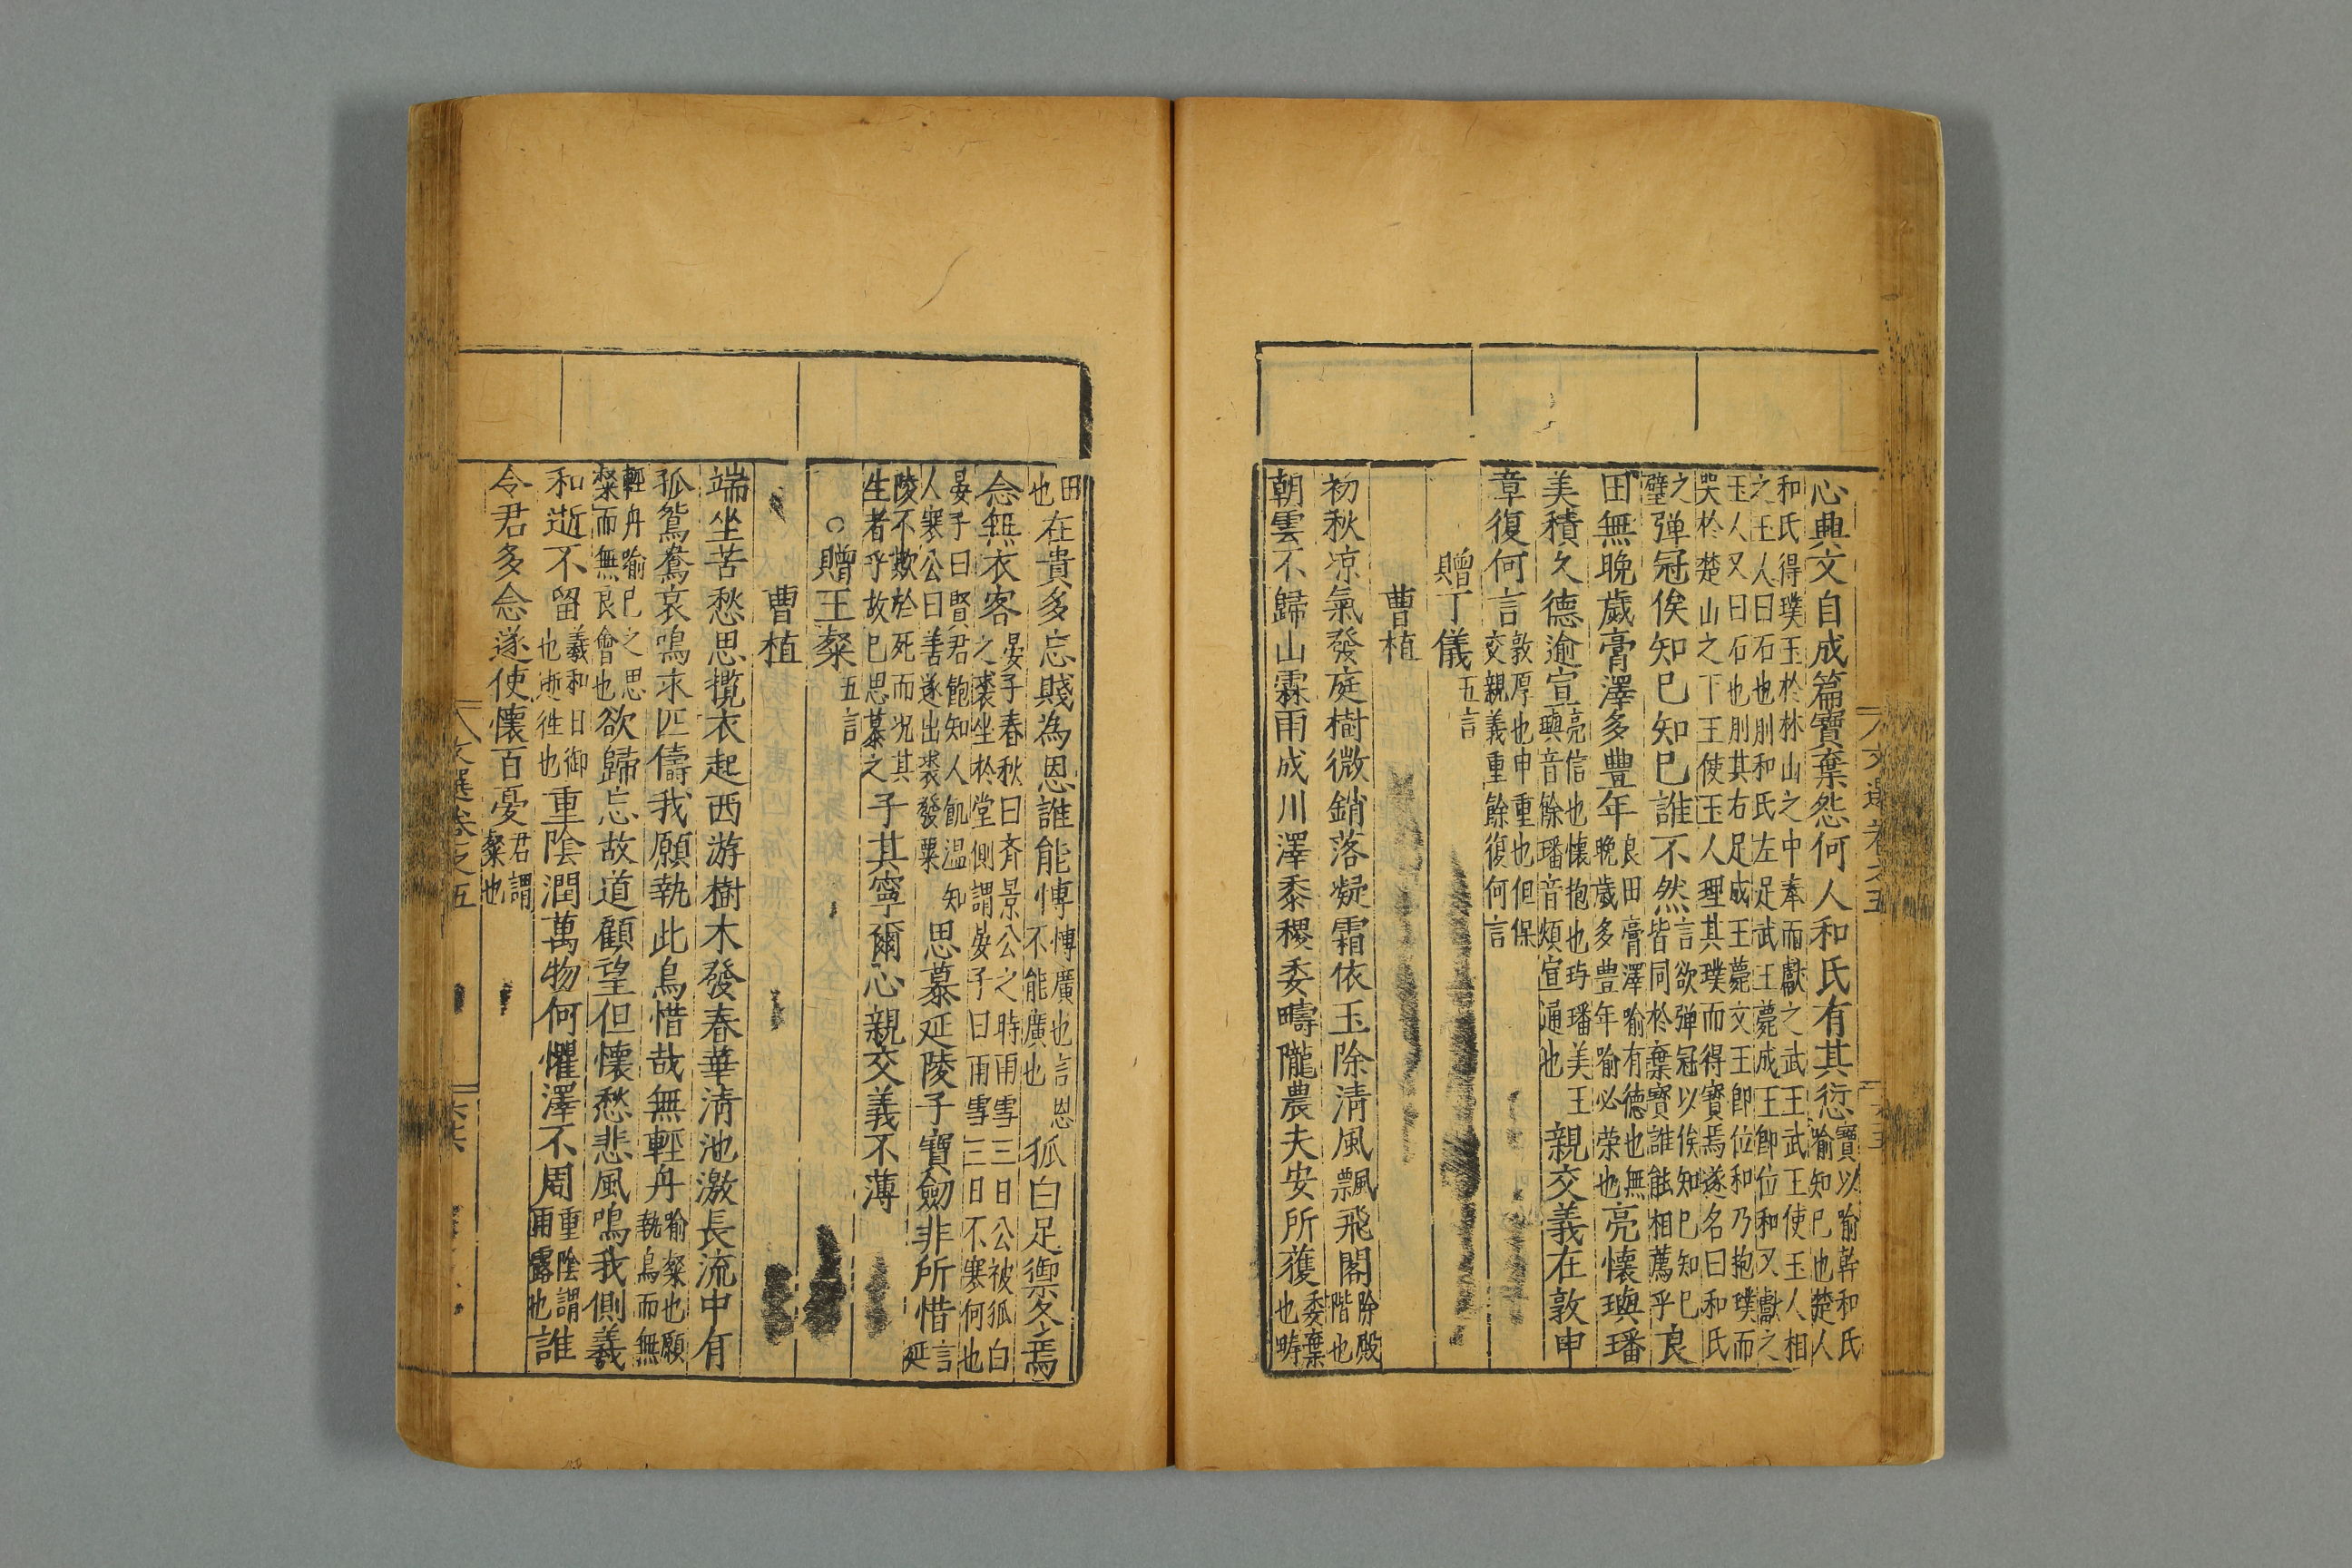 心興文自成篇寶棄怨何人和氏有其愆寶以喻幹和氏喻知巳也楚人
和氏得璞玉於林山之中奉而獻之武王武王使玉人相之玉人曰石也刖和氏左足武王薨成王即位和又獻之
玉人又曰石也刖其右足成王薨文王即位和乃抱璞而哭於楚山之下王使玉人理其璞而得寳焉遂名曰和氏
之璧弹冠俟知巳知巳誰不然言欲弹冠以俟知巳知巳皆同於棄寳誰能相薦乎良
田無晚歲膏澤多豐年良田膏澤喻有德也無晚歲多豊年喻必荣也亮懷璵璠
美積久德逾宣亮信也懐抱也玙璠美玉璵音餘璠音煩宣通也親交義在敦申
章復何言敦厚也申重也但保交親義重餘復何言
贈丁儀五言
曹植
初秋凉氣發庭樹微銷落凝霜依玉除清風飄飛閣除殿階也
朝雲不歸山霖雨成川澤黍稷委疇隴農夫安所穫委棄也疇
田也在貴多忘賤為恩誰能愽愽廣也言恩不能廣也狐白足禦冬焉
念無衣客晏子春秋曰斉景公之時雨雪三日公被狐白之裘坐於堂側謂晏子曰雨雪三日不寒何也
晏子曰賢君飽知人飢温知人寒公曰善遂出裘發粟思慕延陵子寶劒非所惜言延
陵不欺於死而况其生者乎故巳思慕之子其寧爾心親交義不薄
○贈王粲五言
曹植
端坐苦愁思攬衣起西游樹木發春華清池激長流中有
孤鴛鴦哀鳴求匹儔我願執此鳥惜哉無輕舟喻粲也願執鳥而無
輕舟喻巳之思粲而無良會也欲歸忘故道顧望但懷愁悲風鳴我側羲
和逝不留羲和日御也逝徃也重陰潤萬物何懼澤不周重陰謂雨露也誰
令君多念遂使懷百憂君謂粲也
文選卷之五